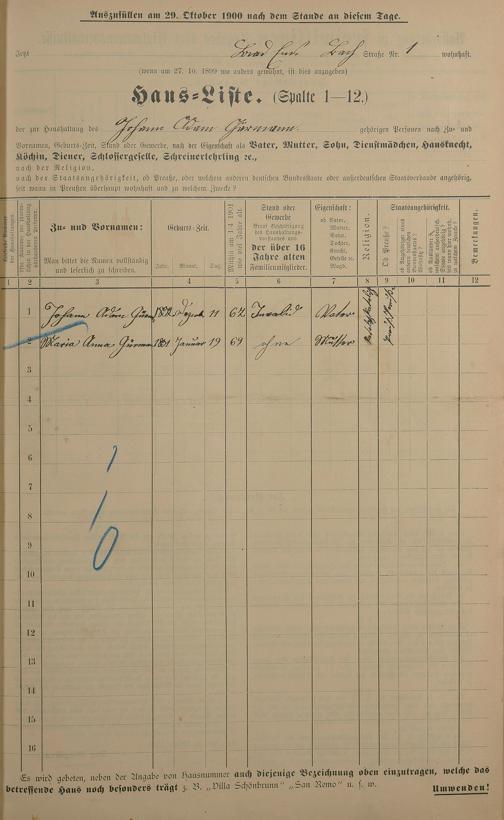 Auszufüllen am 29. Oktober 1900 nach dem Stande an diesem Tage.
Jetzt Bad Ems Bach Straße Nr. 1 wohnhaft.
(wenn am 27. 10. 1899 wo anders gewohnt, ist dies anzugeben)
Haus-Liste. (Spalte 1—12.)
der zur Haushaltung des Johann Adam gehörigen Personen nach Zu- und
Vornamen, Geburts-Zeit, Stand oder Gewerbe, nach der Eigenschaft als Vater, Mutter, Sohn, Dienstmädchen, Hausknecht,
Köchin, Diener, Schlossergeselle, Schreinerlehrling ꝛc.,
nach der Religion,
nach der Staatsangehörigkeit, ob Preuße, oder welchem anderen deutschen Bundesstaate oder außerdeutschen Staatsverbande angehörig,
seit wann in Preußen überhaupt wohnhaft und zu welchem Zwecke?
Zu- und Vornamen:
Man bittet die Namen vollständig
und leserlich zu schreiben.
Geburts-Zeit.
Jahr. Monat. Tag.
Mithin am 1.4.1901
wie viel Jahre alt
Stand oder
Gewerbe
der über 16
Jahre alten
Familienmitglieder.
Eigenschaft:
ob Vater,
Mutter,
Sohn,
Tochter,
Knecht,
Geselle ꝛc.
Magd.
Religion.
Staatsangehörigkeit.
Ob Preuße?
Bemerkungen.
1 2 3 4 5 6 7 8 9 10 11 12
1 Johann Adam 11 67 Invalid Vater
2 Maria Anna Januar 19 69 ohne Mutter
3
4
5
6
7
8
9
10
11
12
13
14
15
16
Es wird gebeten, neben der Angabe von Hausnummer auch diejenige Bezeichnung oben einzutragen, welche das
betreffende Haus noch besonders trägt z. B. „Villa Schönbrunn“ „San Remo“ u. s. w. Umwenden!